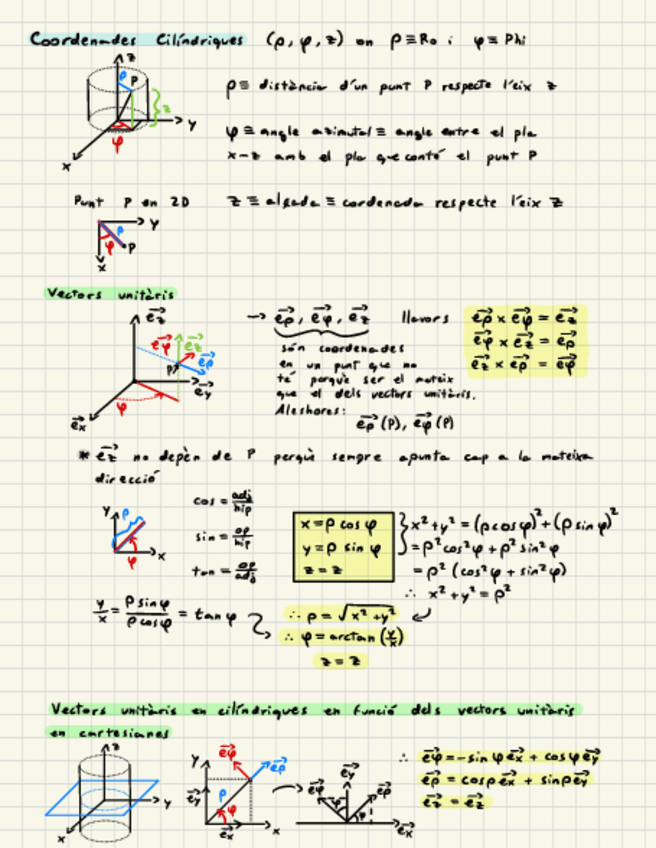 Coordenades Cilíndriques (ρ, φ, z) on ρ≡Ro i φ≡Phi
z
ρ P
z
y
φ
x
ρ≡ distància d'un punt P respecte l'eix z
φ≡ angle azimutal ≡ angle entre el pla
x-z amb el pla que conté el punt P
Punt P en 2D
z ≡ alçada ≡ cordenada respecte l'eix z
y
ρ
φ
P
x
Vectors unitàris
→ e⃗ρ, e⃗φ, e⃗z llavors
e⃗ρ × e⃗φ = e⃗z
e⃗φ × e⃗z = e⃗ρ
e⃗z × e⃗ρ = e⃗φ
e⃗z
e⃗φ e⃗z
e⃗ρ
P
e⃗y
φ
e⃗x
són coordenades
en un punt que no
té perquè ser el mateix
que el dels vectors unitàris.
Aleshores:
e⃗ρ(P), e⃗φ(P)
* e⃗z no depèn de P perquè sempre apunta cap a la mateixa
direcció
y
ρ
φ
x
cos = adj/hip
sin = op/hip
tan = op/adj
x = ρ cos φ
y = ρ sin φ
z = z
x²+y² = (ρ cos φ)² + (ρ sin φ)²
= ρ² cos² φ + ρ² sin² φ
= ρ² (cos² φ + sin² φ)
∴ x²+y² = ρ²
y/x = ρ sin φ/ρ cos φ = tan φ
∴ ρ = √x²+y²
∴ φ = arctan (y/x)
z = z
Vectors unitàris en cilíndriques en funció dels vectors unitàris
en cartesianes
z
y
x
y
e⃗φ
e⃗ρ
ρ
e⃗y
φ
e⃗x
x
e⃗φ e⃗y e⃗ρ
φ φ
e⃗x
∴ e⃗φ = -sin φ e⃗x + cos φ e⃗y
e⃗ρ = cosρ e⃗x + sinρ e⃗y
e⃗z = e⃗z